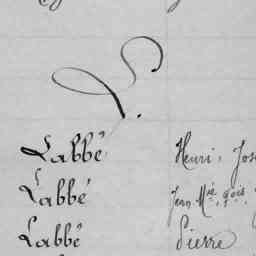 L.
Labbé Henri, Jos
Labbé Jean Mie, çois,
Labbé Pierre